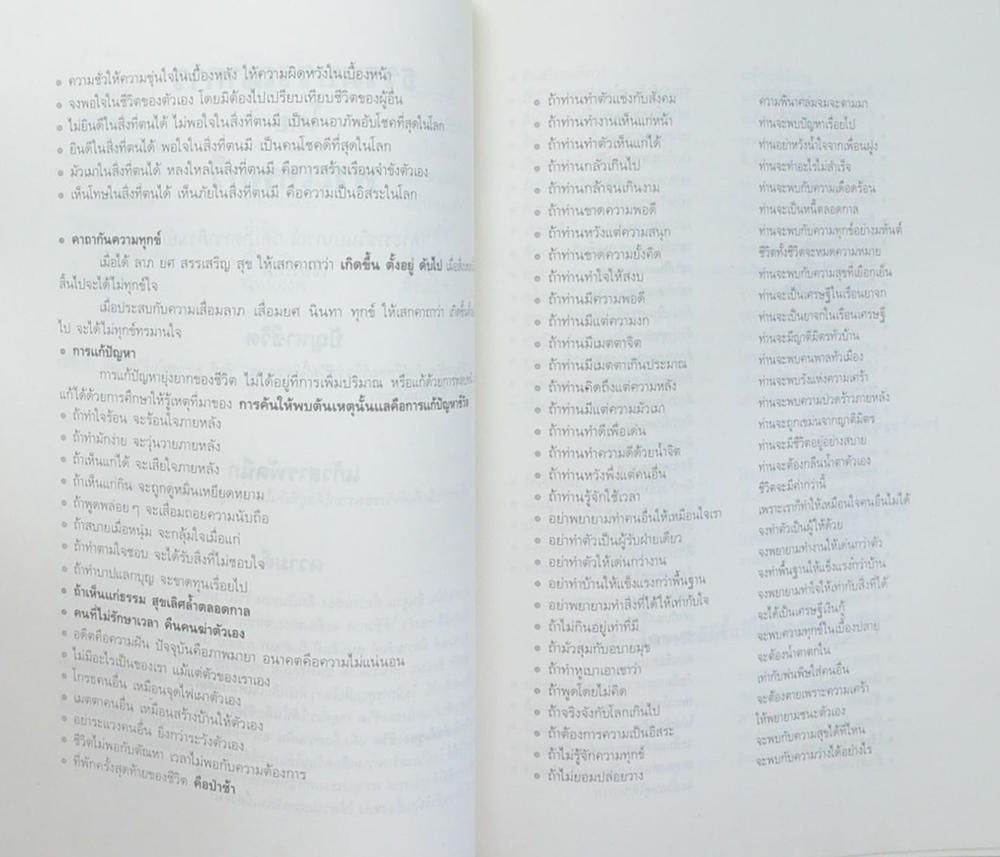 ● ความชั่วให้ความขุ่นใจในเบื้องหลัง ให้ความผิดหวังในเบื้องหน้า
● จงพอใจในชีวิตของตัวเอง โดยมิต้องไปเปรียบเทียบชีวิตของผู้อื่น
● ไม่ยินดีในสิ่งที่ตนได้ ไม่พอใจในสิ่งที่ตนมี เป็นคนอาภัพอับโชคที่สุดในโลก
● ยินดีในสิ่งที่ตนได้ พอใจในสิ่งที่ตนมี เป็นคนโชคดีที่สุดในโลก
● มัวเมาในสิ่งที่ตนได้ หลงใหลในสิ่งที่ตนมี คือการสร้างเรือนจำขังตัวเอง
● เห็นโทษในสิ่งที่ตนได้ เห็นภัยในสิ่งที่ตนมี คือความเป็นอิสระในโลก
● คาถากันความทุกข์
เมื่อได้ ลาภ ยศ สรรเสริญ สุข ให้เสกคาถาว่า เกิดขึ้น ตั้งอยู่ ดับไป
สิ้นไปจะได้ไม่ทุกข์ใจ
เมื่อประสบกับความเสื่อมลาภ เสื่อมยศ นินทา ทุกข์ ให้เสกคาถาว่า
ไป จะได้ไม่ทุกข์ทรมานใจ
● การแก้ปัญหา
การแก้ปัญหายุ่งยากของชีวิต ไม่ได้อยู่ที่การเพิ่มปริมาณ หรือแก้ด้วยการ
แก้ได้ด้วยการศึกษาให้รู้เหตุที่มาของ การค้นให้พบต้นเหตุนั้นแลคือการแก้ปัญหาชีวิต
● ถ้าทำใจร้อน จะร้อนใจภายหลัง
● ถ้ามักง่าย จะวุ่นวายภายหลัง
● ถ้าเห็นแก่ได้ จะเสียใจภายหลัง
● ถ้าเห็นแก่กิน จะถูกดูหมิ่นเหยียดหยาม
● ถ้าพูดพล่อยๆ จะเสื่อมถอยความนับถือ
● ถ้าสบายเมื่อหนุ่ม จะกลุ้มใจเมื่อแก่
● ถ้าทำตามใจชอบ จะได้รับสิ่งที่ไม่ชอบใจ
● ถ้าทำบาปแลกบุญ จะขาดทุนเรื่อยไป
● ถ้าเห็นแก่ธรรม สุขเลิศล้ำตลอดกาล
● คนที่ไม่รักษาเวลา คือคนฆ่าตัวเอง
● อดีตคือความฝัน ปัจจุบันคือภาพมายา อนาคตคือความไม่แน่นอน
● ไม่มีอะไรเป็นของเรา แม้แต่ตัวของเราเอง
● โกรธคนอื่น เหมือนจุดไฟเผาตัวเอง
● เมตตาคนอื่น เหมือนสร้างบ้านให้ตัวเอง
● อย่าระแวงคนอื่น ยิ่งกว่าระวังตัวเอง
● ชีวิตไม่พอกับตัณหา เวลาไม่พอกับความต้องการ
● ที่พักครั้งสุดท้ายของชีวิต คือป่าช้า
● ถ้าท่านทำตัวแข่งกับสังคม ความพินาศล่มจมจะตามมา
● ถ้าท่านทำงานเห็นแก่หน้า ท่านจะพบปัญหาเรื่อยไป
● ถ้าท่านทำตัวเห็นแก่ได้ ท่านอย่าหวังน้ำใจจากเพื่อนฝูง
● ถ้าท่านกลัวเกินไป ท่านจะทำอะไรไม่สำเร็จ
● ถ้าท่านกล้าจนเกินงาม ท่านจะพบกับความเดือดร้อน
● ถ้าท่านขาดความพอดี ท่านจะเป็นหนี้ตลอดกาล
● ถ้าท่านหวังแต่ความสนุก ท่านจะพบกับความทุกข์อย่างมหันต์
● ถ้าท่านขาดความยั้งคิด ชีวิตทั้งชีวิตจะหมดความหมาย
● ถ้าท่านทำใจให้สงบ ท่านจะพบกับความสุขที่เยือกเย็น
● ถ้าท่านมีความพอดี ท่านจะเป็นเศรษฐีในเรือนยาจก
● ถ้าท่านมีแต่ความงก ท่านจะเป็นยาจกในเรือนเศรษฐี
● ถ้าท่านมีเมตตาจิต ท่านจะมีญาติมิตรทั่วบ้าน
● ถ้าท่านมีเมตตาเกินประมาณ ท่านจะพบคนพาลทั่วเมือง
● ถ้าท่านคิดถึงแต่ความหลัง ท่านจะพบรังแห่งความเศร้า
● ถ้าท่านมีแต่ความมัวเมา ท่านจะพบความปวดร้าวภายหลัง
● ถ้าท่านทำดีเพื่อเด่น ท่านจะถูกเขม่นจากญาติมิตร
● ถ้าท่านทำความดีด้วยน้ำจิต ท่านจะมีชีวิตอยู่อย่างสบาย
● ถ้าท่านหวังพึ่งแต่คนอื่น ท่านจะต้องกลืนน้ำตาตัวเอง
● ถ้าท่านรู้จักใช้เวลา ชีวิตจะมีค่ากว่านี้
● อย่าพยายามทำคนอื่นให้เหมือนใจเรา เพราะเราก็ทำให้เหมือนใจคนอื่นไม่ได้
● อย่าทำตัวเป็นผู้รับฝ่ายเดียว จงทำตัวเป็นผู้ให้ด้วย
● อย่าทำตัวให้เด่นกว่างาน จงพยายามทำงานให้เด่นกว่าตัว
● อย่าทำบ้านให้แข็งแรงกว่าพื้นฐาน จงทำพื้นฐานให้แข็งแรงกว่าบ้าน
● อย่าพยายามทำสิ่งที่ได้ให้เท่ากับใจ จงพยายามทำใจให้เท่ากับสิ่งที่ได้
● ถ้าไม่กินอยู่เท่าที่มี จะได้เป็นเศรษฐีเงินกู้
● ถ้ามัวสุมกับอบายมุข จะพบความทุกข์ในเบื้องปลาย
● ถ้าทำหูเบาเอาเขาว่า จะต้องน้ำตาตกใน
● ถ้าพูดโดยไม่คิด เท่ากับพ่นพิษใส่คนอื่น
● ถ้าจริงจังกับโลกเกินไป จะต้องตายเพราะความเศร้า
● ถ้าต้องการความเป็นอิสระ ให้พยายามชนะตัวเอง
● ถ้าไม่รู้จักความทุกข์ จะพบกับความสุขได้ที่ไหน
● ถ้าไม่ยอมปล่อยวาง จะพบกับความว่างได้อย่างไร